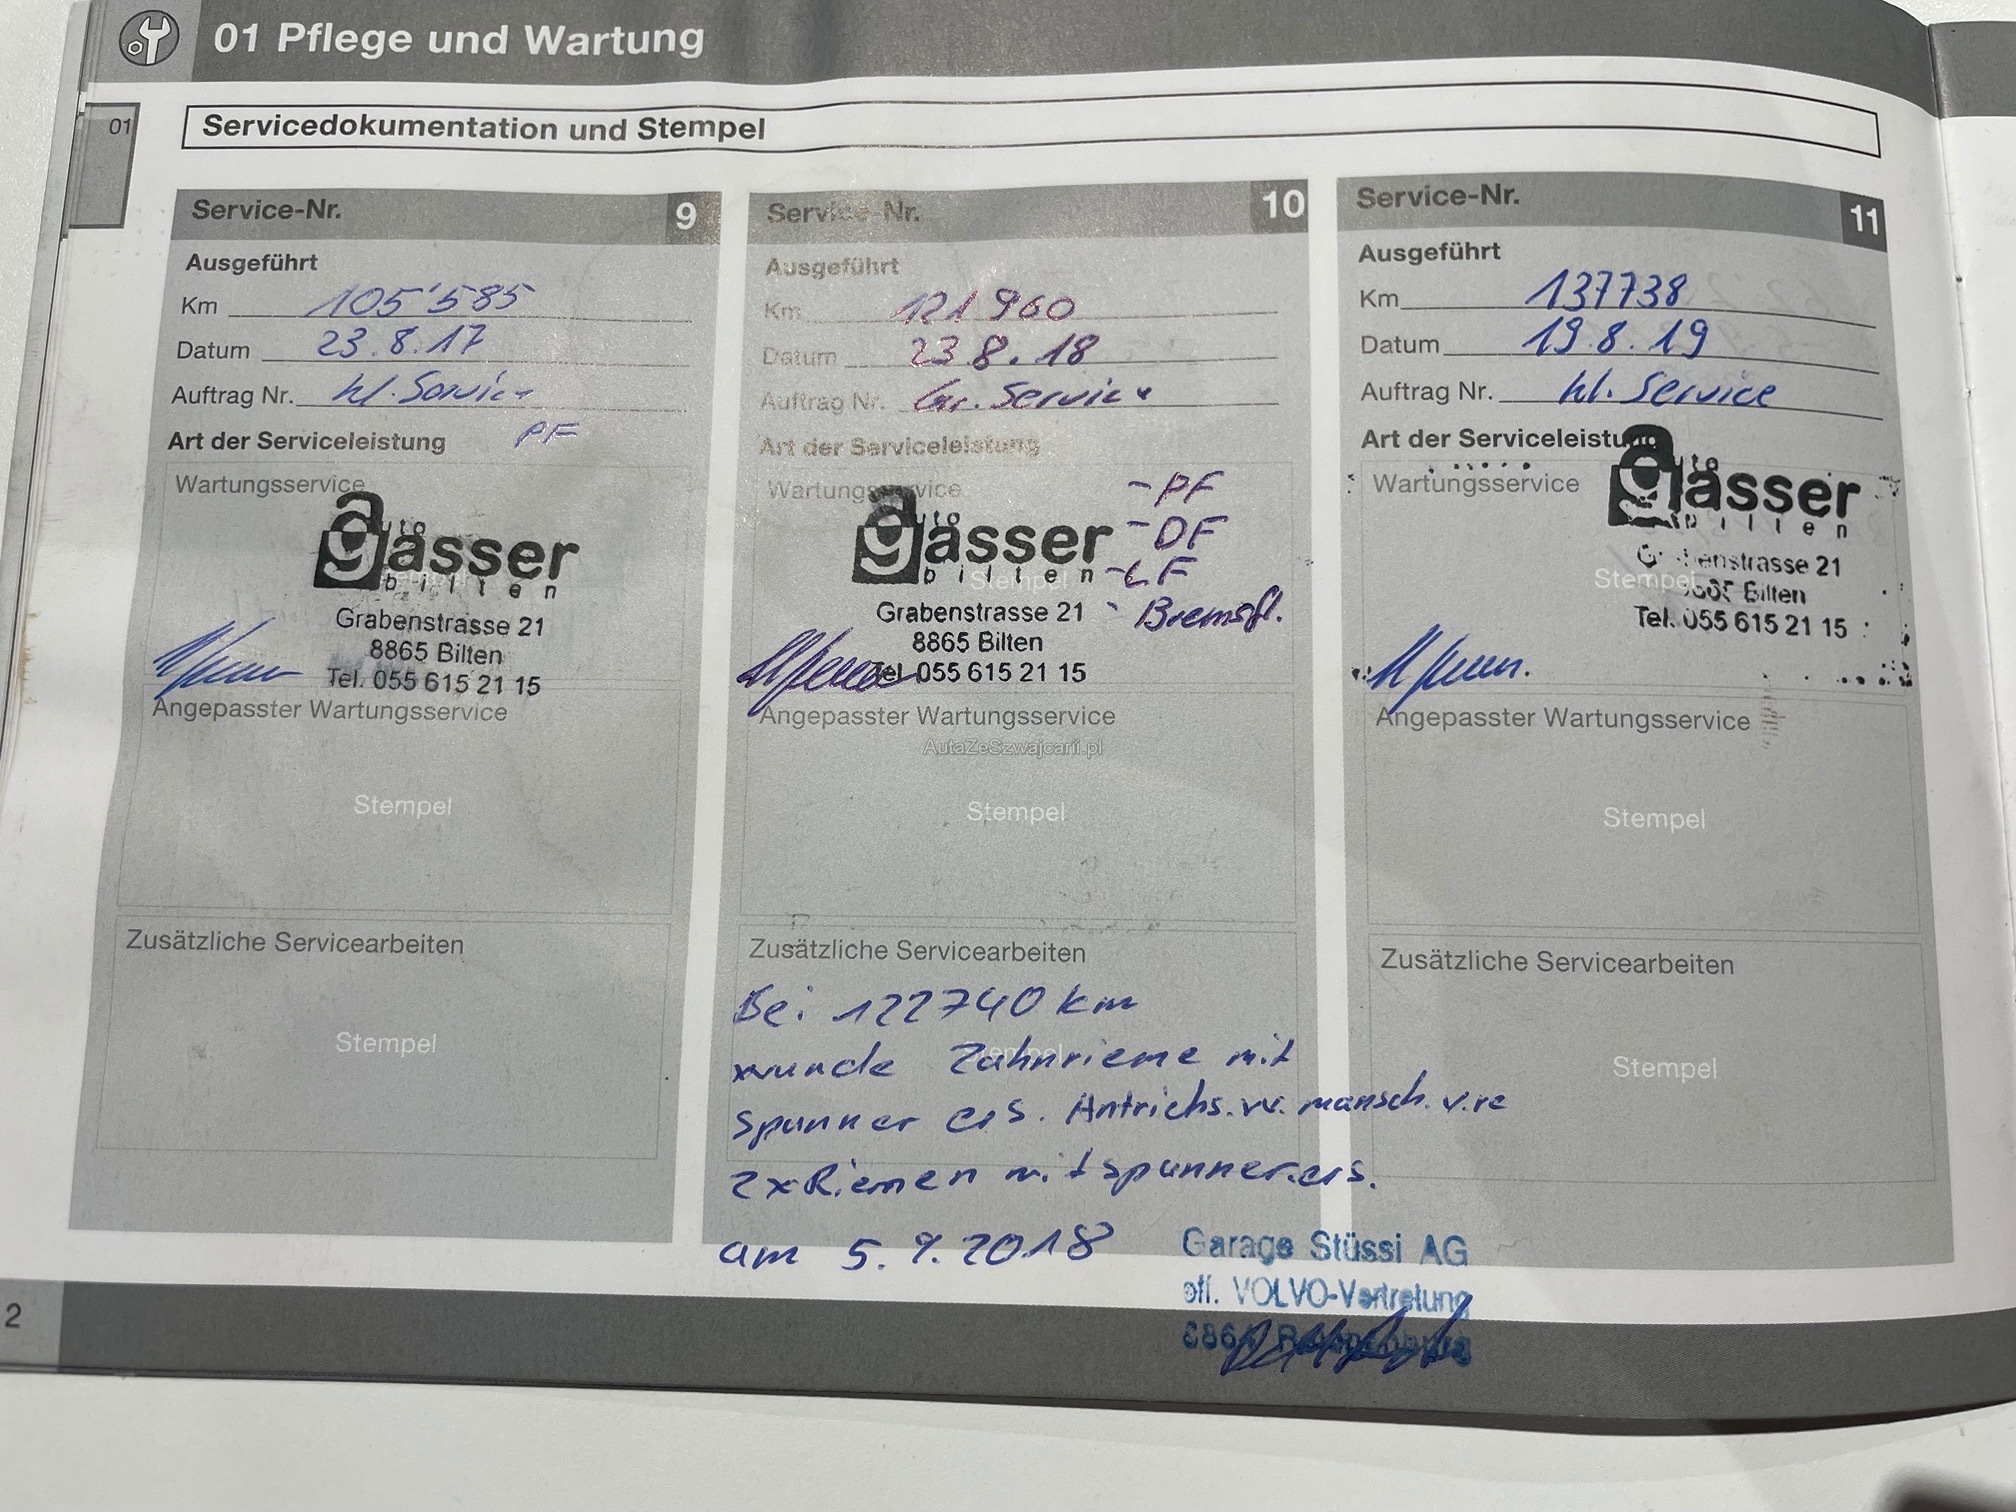 01 Pflege und Wartung
01
Servicedokumentation und Stempel
Service-Nr. 9
Ausgeführt
Km 105'585
Datum 23.8.17
Auftrag Nr. kl. Service
PF
Art der Serviceleistung
Wartungsservice
auto
gasser
bilten
Grabenstrasse 21
8865 Bilten
Tel. 055 615 21 15
Angepasster Wartungsservice
Stempel
Zusätzliche Servicearbeiten
Stempel
Service-Nr. 10
Ausgeführt
Km 121960
Datum 23.8.18
Auftrag Nr. Gr. Service
Art der Serviceleistung
Wartungsservice
- PF
- DF
- LF
- Bremsfl.
auto
gasser
bilten
Stempel
Grabenstrasse 21
8865 Bilten
Tel. 055 615 21 15
Angepasster Wartungsservice
AutaZeSzwajcarii.pl
Stempel
Zusätzliche Servicearbeiten
Stempel
Bei 122740 km
wurde Zahnrieme mit
spanner ers. Antriebs.w. mansch. v.re
2x Riemen mit spanner.ers.
am 5.9.2018
Garage Stüssi AG
off. VOLVO-Vertretung
Service-Nr. 11
Ausgeführt
Km 137738
Datum 19.8.19
Auftrag Nr. kl. Service
Art der Serviceleistung
Wartungsservice
auto
gasser
bilten
Stempel
Grabenstrasse 21
8865 Bilten
Tel. 055 615 21 15
Angepasster Wartungsservice
Stempel
Zusätzliche Servicearbeiten
Stempel
2